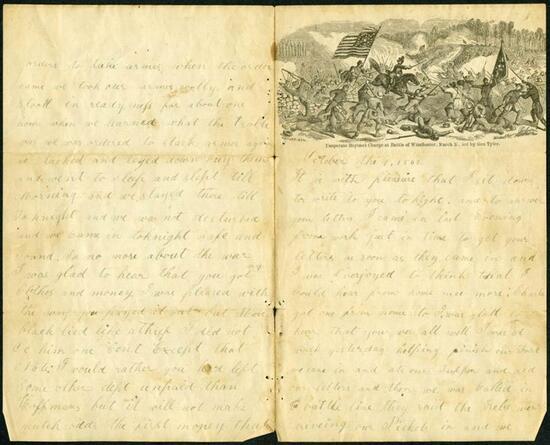 orders to take arms when the order
came we took our arms and
stood in readyness for about one
hour when we learned what the trouble
was we was ordered to stack arms again
we stacked and layed down by them
and went to sleep and slept till
morning and we stayed there till
to knight and we was not disturbed
and we came in to knight safe and
sound so no more about the war
I was glad to hear that you got
clothes and money I was pleased with
the way you payed it out but
black lied like a thief I did not
o him one cent Except that
Note I would rather you had left
some other debt unpaid than
but it will not make
much odds the first money that
Desperate Bayonet Charge at Battle of Winchester, March 2, led by Gen Tyler.
October the
It is with pleasure that I sit down
to write to you to knight and to answer
your letter I came in last evening
from work just in time to get your
letters as soon as they came in and
I was overjoyed to think that I
could hear from home once more Charles
got one from home to I was glad to
hear that you was all well I was at
work yesterday helping finish our fort
we came in and ate our supper and red
our letters and then we was called in
battle line they said the rebs was
driving our Pickets in and we